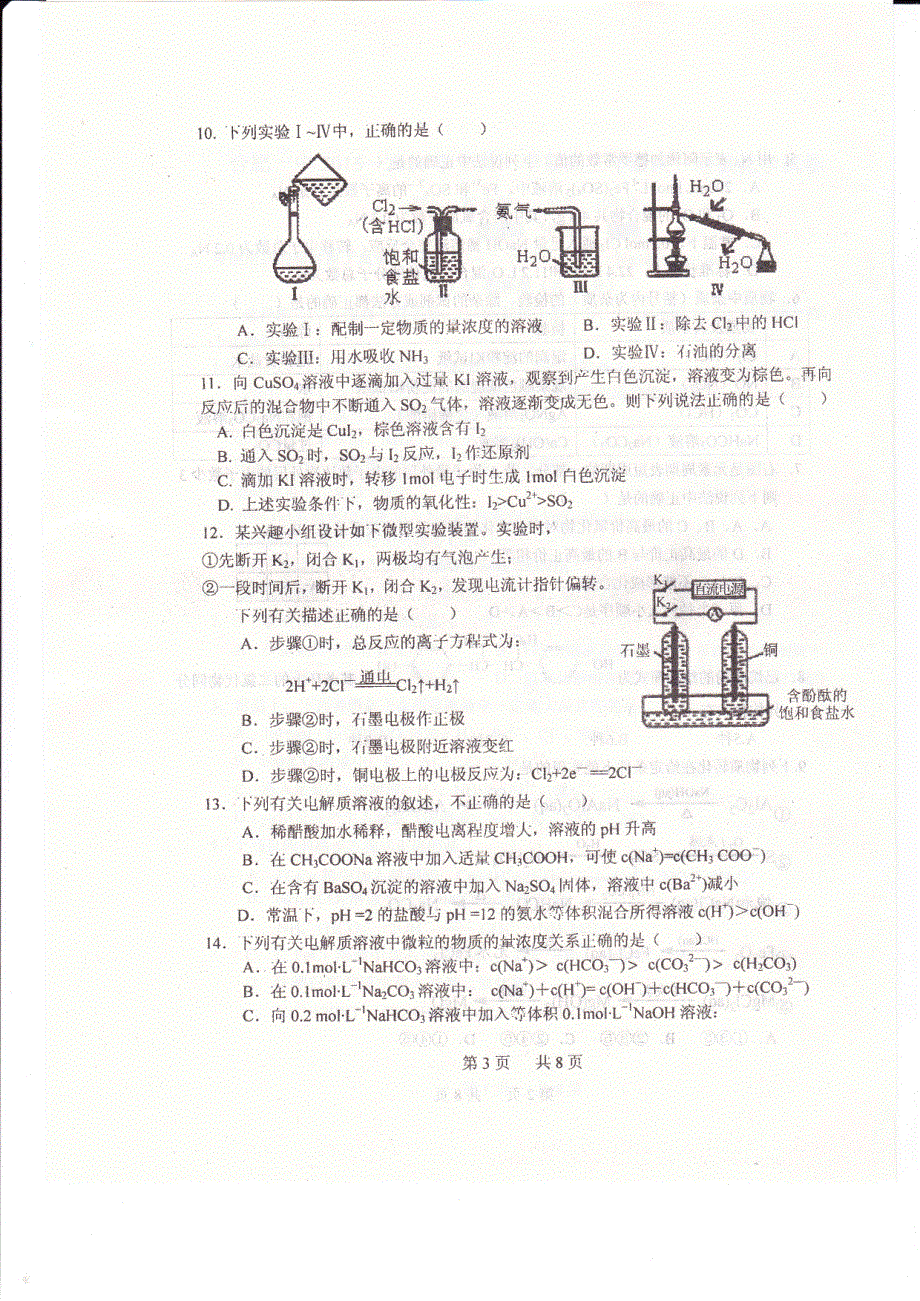 10. 下列实验Ⅰ~Ⅳ中，正确的是（　　）
Cl2→
(含HCl)
饱和
食盐
水
氨气
H2O
H2O
H2O
Ⅰ
Ⅱ
Ⅲ
Ⅳ
A．实验Ⅰ：配制一定物质的量浓度的溶液　　B．实验Ⅱ：除去 Cl2中的 HCl
C．实验Ⅲ：用水吸收 NH3　　D．实验Ⅳ：石油的分离
11．向 CuSO4溶液中逐滴加入过量 KI 溶液，观察到产生白色沉淀，溶液变为棕色。再向
反应后的混合物中不断通入 SO2气体，溶液逐渐变成无色。则下列说法正确的是（　　）
A. 白色沉淀是 CuI2，棕色溶液含有 I2
B. 通入 SO2时，SO2与 I2反应，I2作还原剂
C. 滴加 KI 溶液时，转移 1mol 电子时生成 1mol 白色沉淀
D. 上述实验条件下，物质的氧化性：I2>Cu2+>SO2
12．某兴趣小组设计如下微型实验装置。实验时，
①先断开 K2，闭合 K1，两极均有气泡产生；
②一段时间后，断开 K1，闭合 K2，发现电流计指针偏转。
下列有关描述正确的是（　　）
A．步骤①时，总反应的离子方程式为：
2H++2Cl− 通电 Cl2↑+H2↑
B．步骤②时，石墨电极作正极
C．步骤②时，石墨电极附近溶液变红
D．步骤②时，铜电极上的电极反应为：Cl2+2e− ══2Cl−
K1
直流电源
K2
A
石墨
铜
含酚酞的
饱和食盐水
13．下列有关电解质溶液的叙述，不正确的是（　　）
A．稀醋酸加水稀释，醋酸电离程度增大，溶液的 pH 升高
B．在 CH3COONa 溶液中加入适量 CH3COOH，可使 c(Na+)=c(CH3 COO−)
C．在含有 BaSO4 沉淀的溶液中加入 Na2SO4 固体，溶液中 c(Ba2+)减小
D．常温下，pH =2 的盐酸与 pH =12 的氨水等体积混合所得溶液 c(H+)＞c(OH−)
14．下列有关电解质溶液中微粒的物质的量浓度关系正确的是（　　）
A．在 0.1mol·L−1NaHCO3 溶液中：c(Na+)＞ c(HCO3−)＞ c(CO32−)＞ c(H2CO3)
B．在 0.1mol·L−1Na2CO3 溶液中： c(Na+)＋c(H+)= c(OH−)＋c(HCO3−)＋c(CO32−)
C．向 0.2 mol·L−1NaHCO3 溶液中加入等体积 0.1mol·L−1NaOH 溶液：
第 3 页　共 8 页